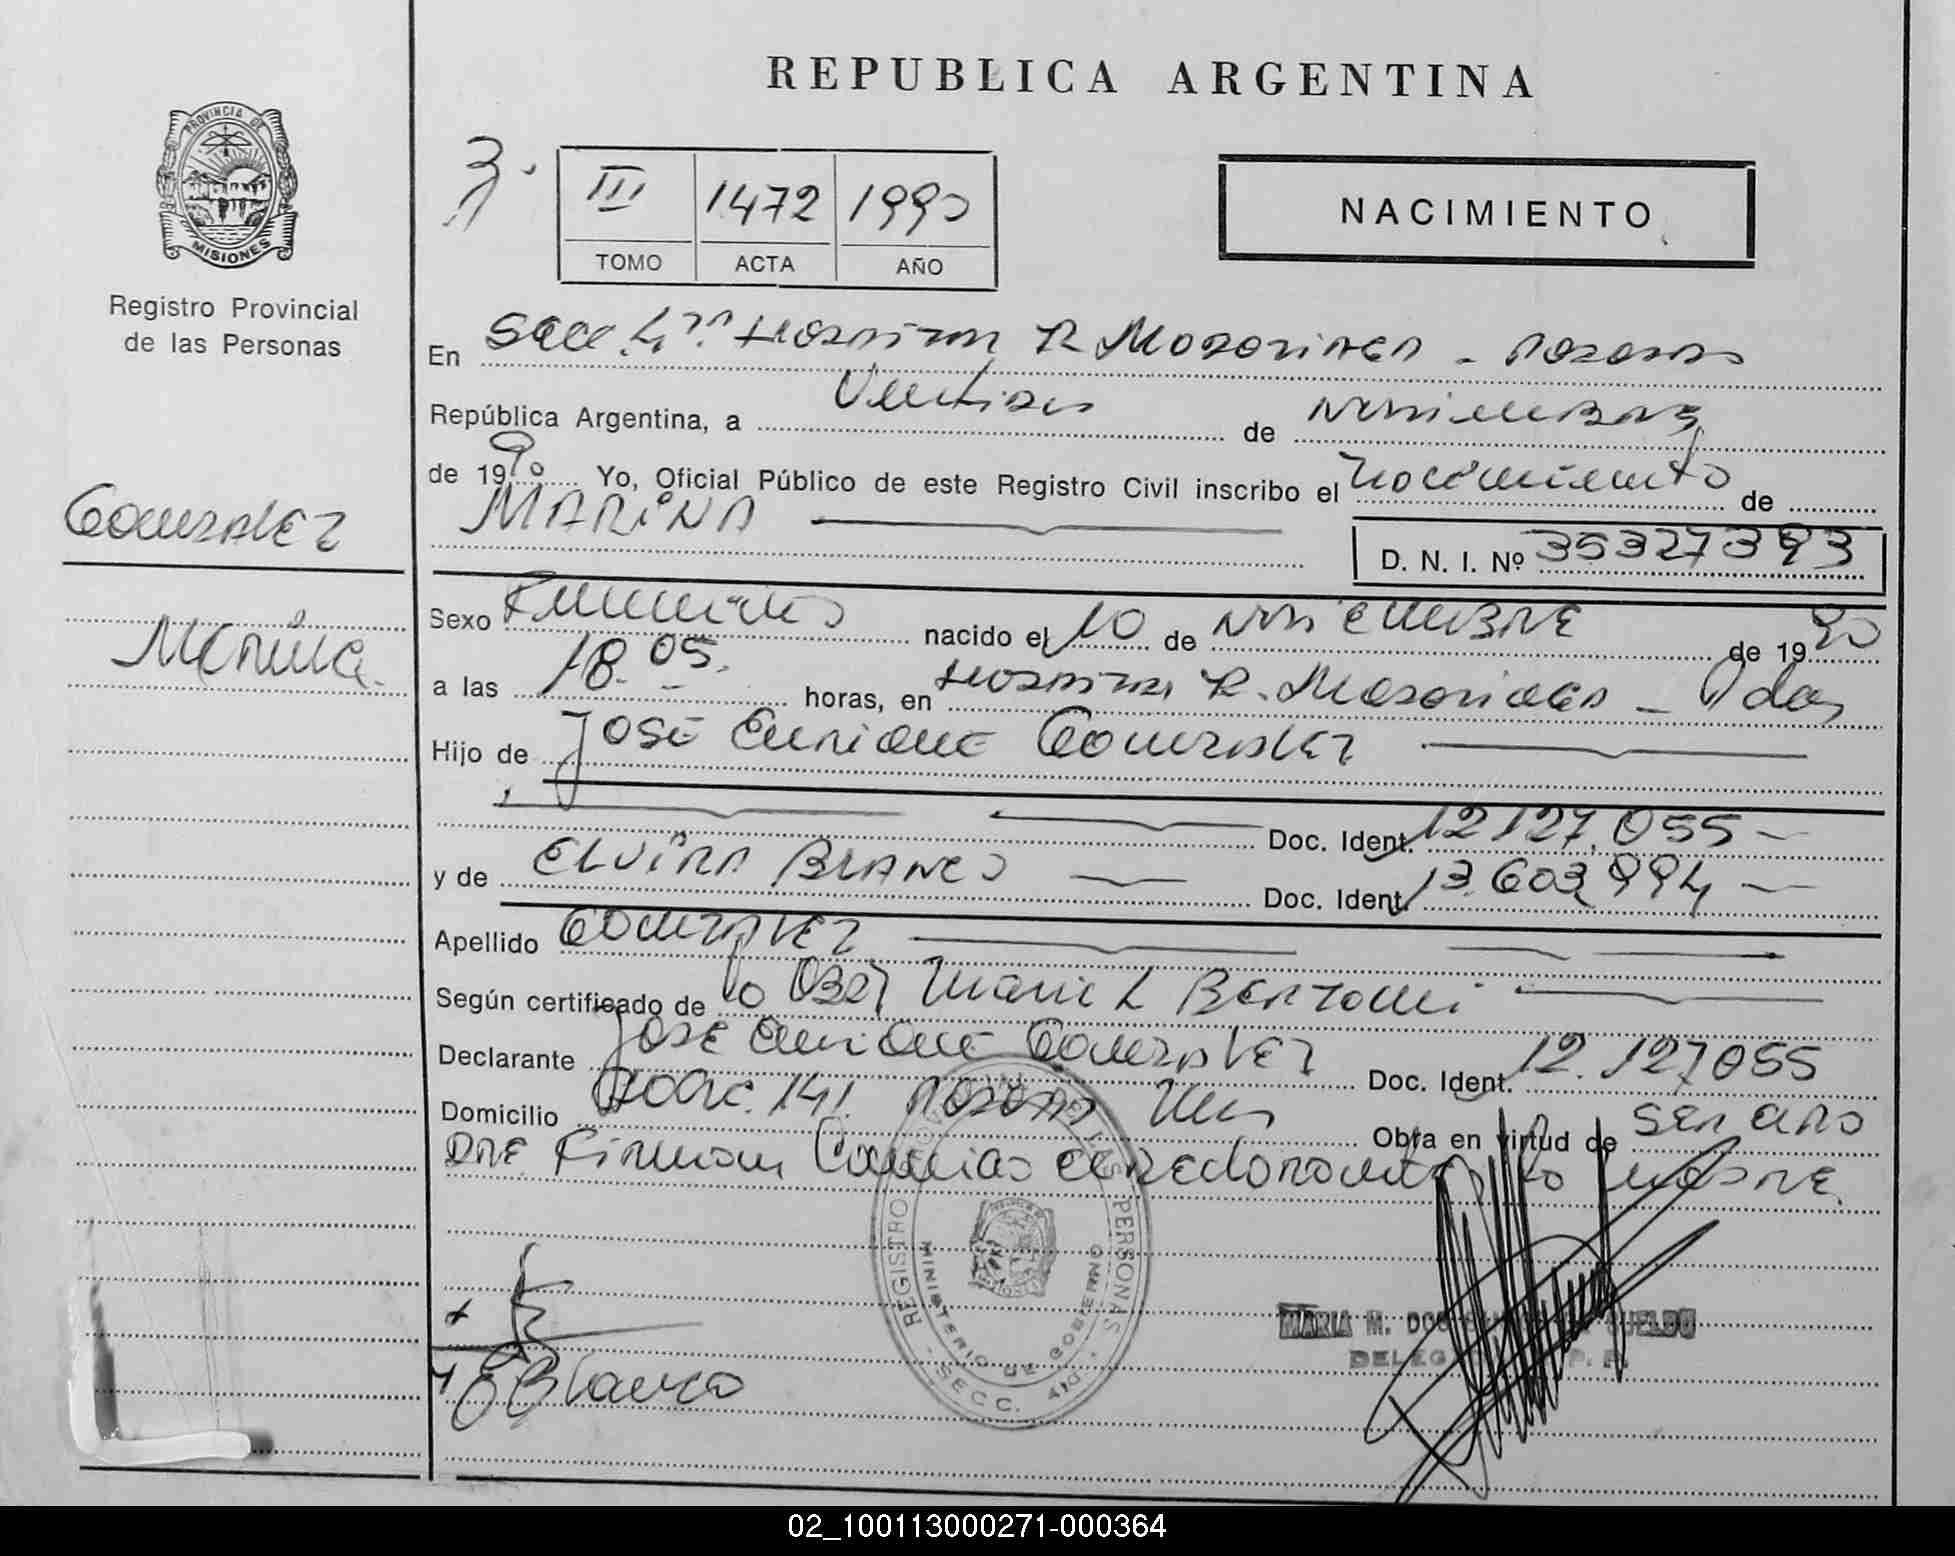 REPUBLICA ARGENTINA
PROVINCIA DE
MISIONES
Registro Provincial
de las Personas
III 1472 1990
TOMO ACTA AÑO
NACIMIENTO
En Secc. 4ta Hospital R. Madariaga - Posadas
República Argentina, a de Noviembre
de 1990 Yo, Oficial Público de este Registro Civil inscribo el nacimiento de
MARINA
D. N. I. Nº 35327393
GONZALEZ
Marina
Sexo Femenino nacido el 10 de Noviembre de 1990
a las 18.05. horas, en Hospital R. Madariaga - Pdas
Hijo de JOSE ENRIQUE GONZALEZ
Doc. Ident. 12.127.055
y de ELVIRA BLANCO Doc. Ident. 13.603.994
Apellido GONZALEZ
Según certificado de la Obst Maria L
Declarante JOSE ENRIQUE GONZALEZ Doc. Ident. 12.127055
Domicilio 141. Posadas Mnes Obra en virtud de ser el pa
dre. Firman la madre.
REGISTRO PROVINCIAL DE LAS PERSONAS
MINISTERIO DE GOBIERNO
- SECC. 4ta. -
MARIA M. DOS SUELDO
EBlanco
02_100113000271-000364